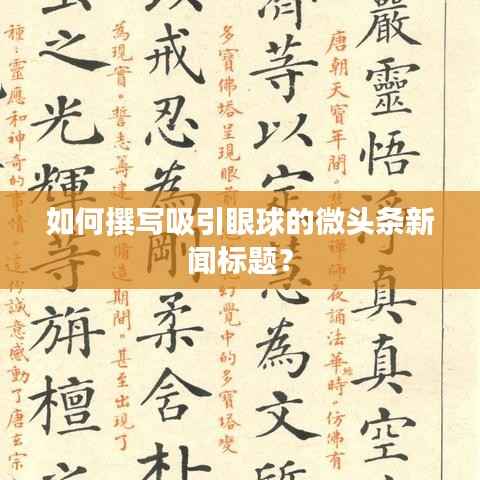 如何撰写吸引眼球的微头条新
闻标题？
嚴靈悟淨真真空
唐朝天寶年間。
師夜誦法華經時。彷彿有
濟等以定
為文
多寶佛塔呈現眼前
幻覺中的多寶塔變
戒忍為
柔含朴
為現實。誓志籌建
造期間。甚至出現了
之光輝等旃檀之
種：靈應和神奇的事情。這
誠意感動了唐玄宗